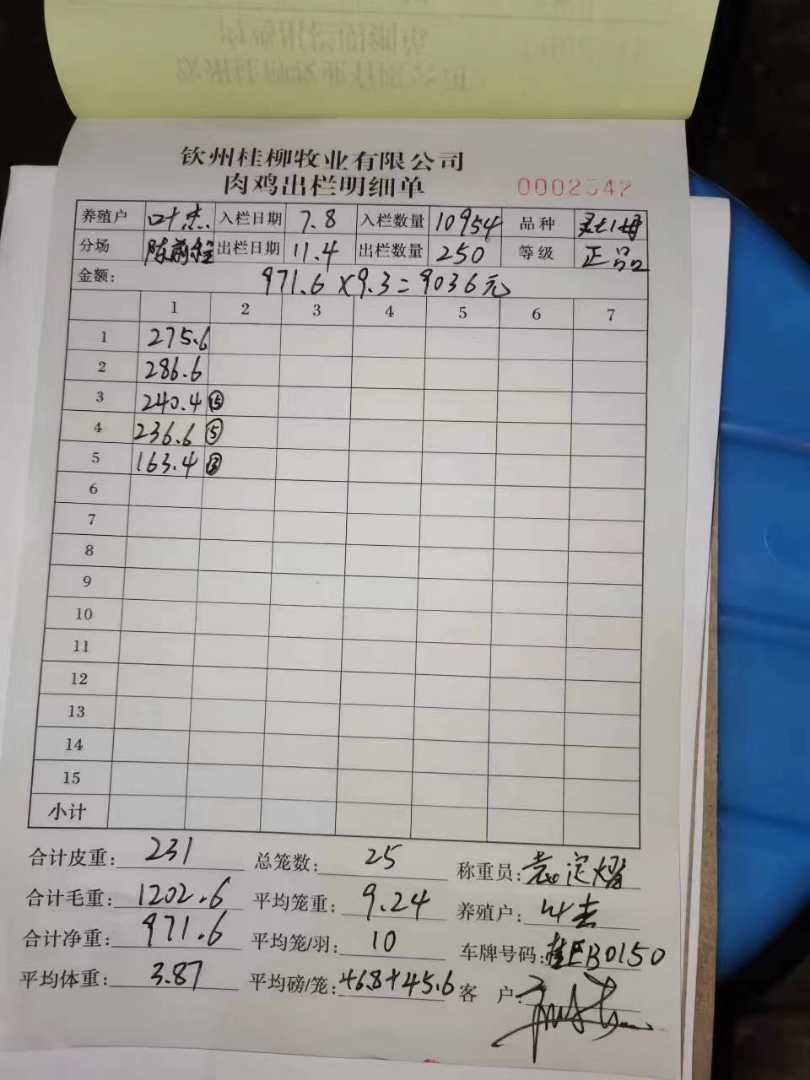 钦州桂柳牧业有限公司
肉鸡出栏明细单 0002542
养殖户 叶杰 入栏日期 7.8 入栏数量 10954 品种
分场 陈前程 出栏日期 11.4 出栏数量 250 等级 正品
金额: 971.6×9.3=9036元
1 2 3 4 5 6 7
1 275.6
2 286.6
3 240.4 ⑮
4 236.6 ⑤
5 163.4
6
7
8
9
10
11
12
13
14
15
小计
合计皮重: 231 总笼数: 25 称重员: 定
合计毛重: 1202.6 平均笼重: 9.24 养殖户: 叶杰
合计净重: 971.6 平均笼/羽: 10 车牌号码: 桂EB0150
平均体重: 3.87 平均磅/笼: 46.8+45.6 客户: